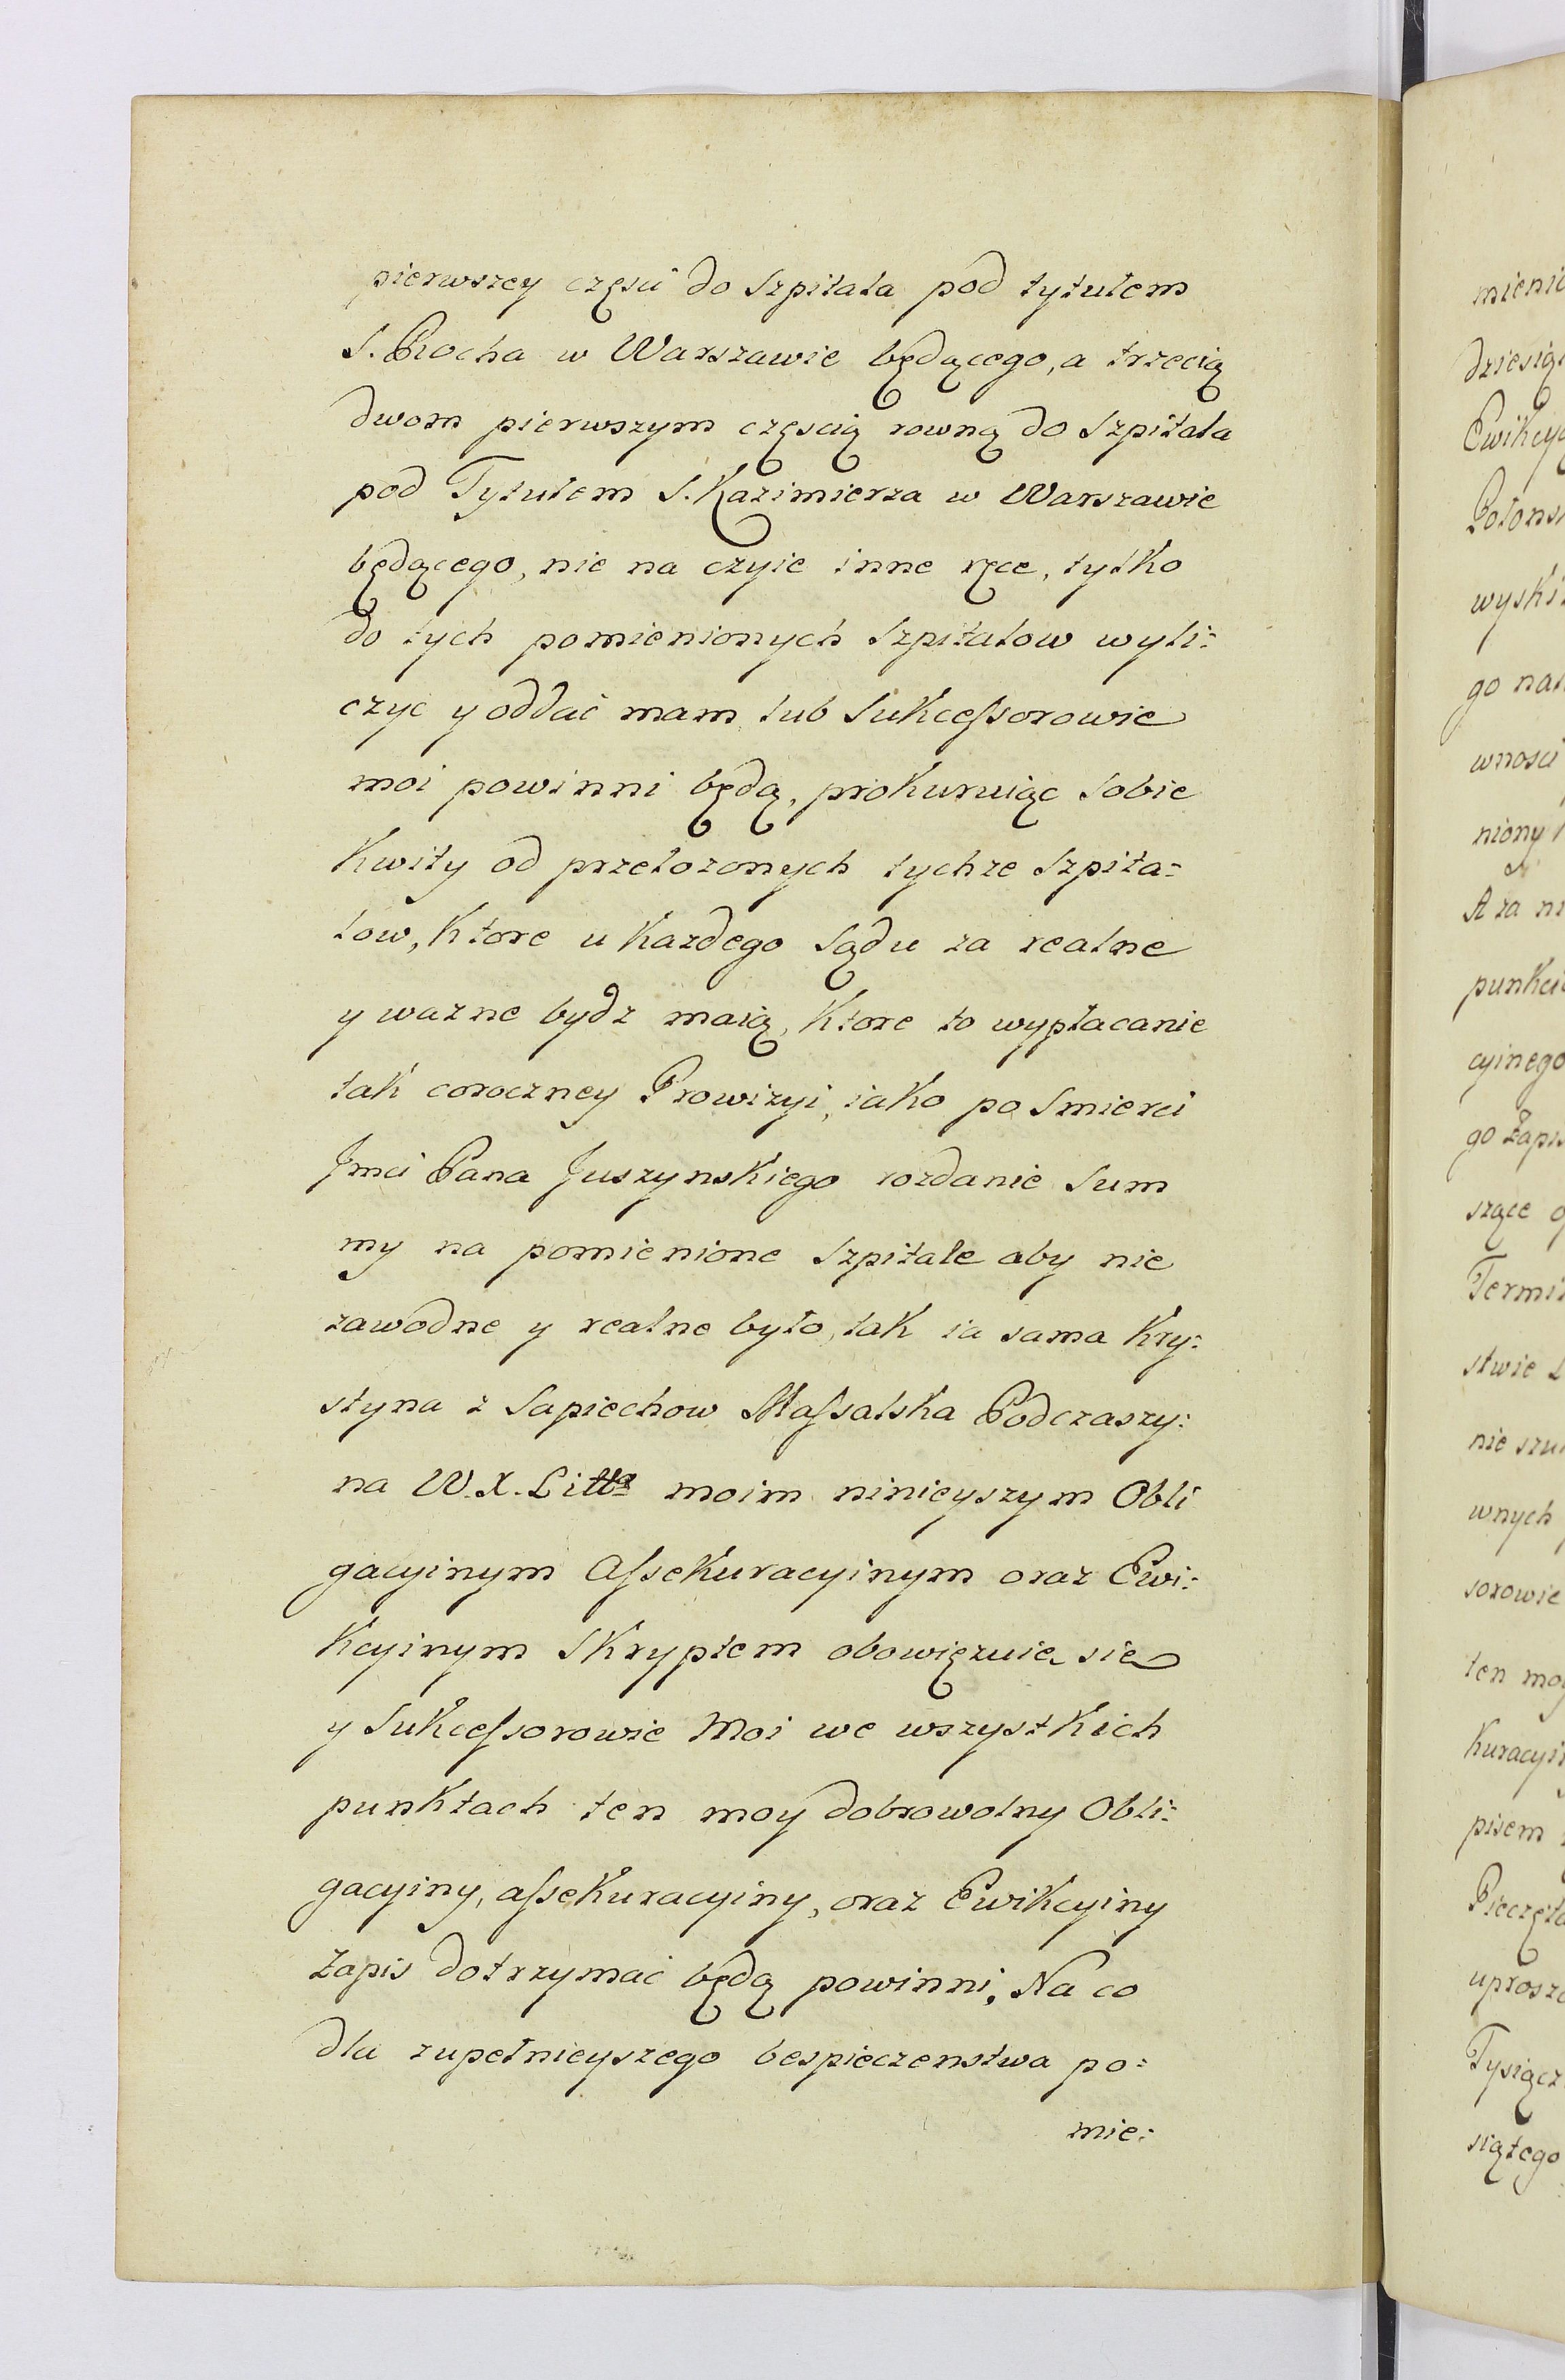 pierwszey częsci do Szpitala pod tytułem
S. Rocha w Warszawie będącego, a trzecią
dwom pierwszym częscią rowną do Szpitala
pod Tytułem S. Kazimierza w Warszawie
będącego, nie na czyie inne ręce, tylko
do tych pomienionych Szpitalow wyli:
czyc y oddać mam lub Sukcessorowie
moi powinni będą, prokuruiąc sobie
Kwity od przełozonych tychze Szpita:
low, Ktore u Kazdego Sądu za realne
y wazne bydz maią, Ktore to wypłacanie
tak coroczney Prowizyi, iako po Smierci
Jmci Pana Juszynskiego rozdanie Sum
my na pomienione Szpitale aby nie
zawodne y realne było, tak ia sama Kry:
styna z Sapiechow Massalska Podczaszy:
na W. X. Litt֊ moim ninieyszym Obli
gacyinym Assekuracyinym oraz Ewi:
Kcyinym Skryptem obowięzuie sie
y Sukcessorowie Moi we wszystkich
punktach ten moy dobrowolny Obli:
gacyiny, assekuracyiny, oraz Ewikcyiny
Zapis dotrzymać będą powinni, Na co
dla zupełnieyszego bespieczenstwa po:
mie:
mienio
dziesią
Ewikcy
Polons
wyski
go na
wnosci
niony
A za ni
punkci
cyinego
go Zapis
szące
Termi
stwie
nie szu
wnych
sorowie
ten moy
Kuracyi
pisem
Pieczęto
uprosz
Tysiącz
siątego